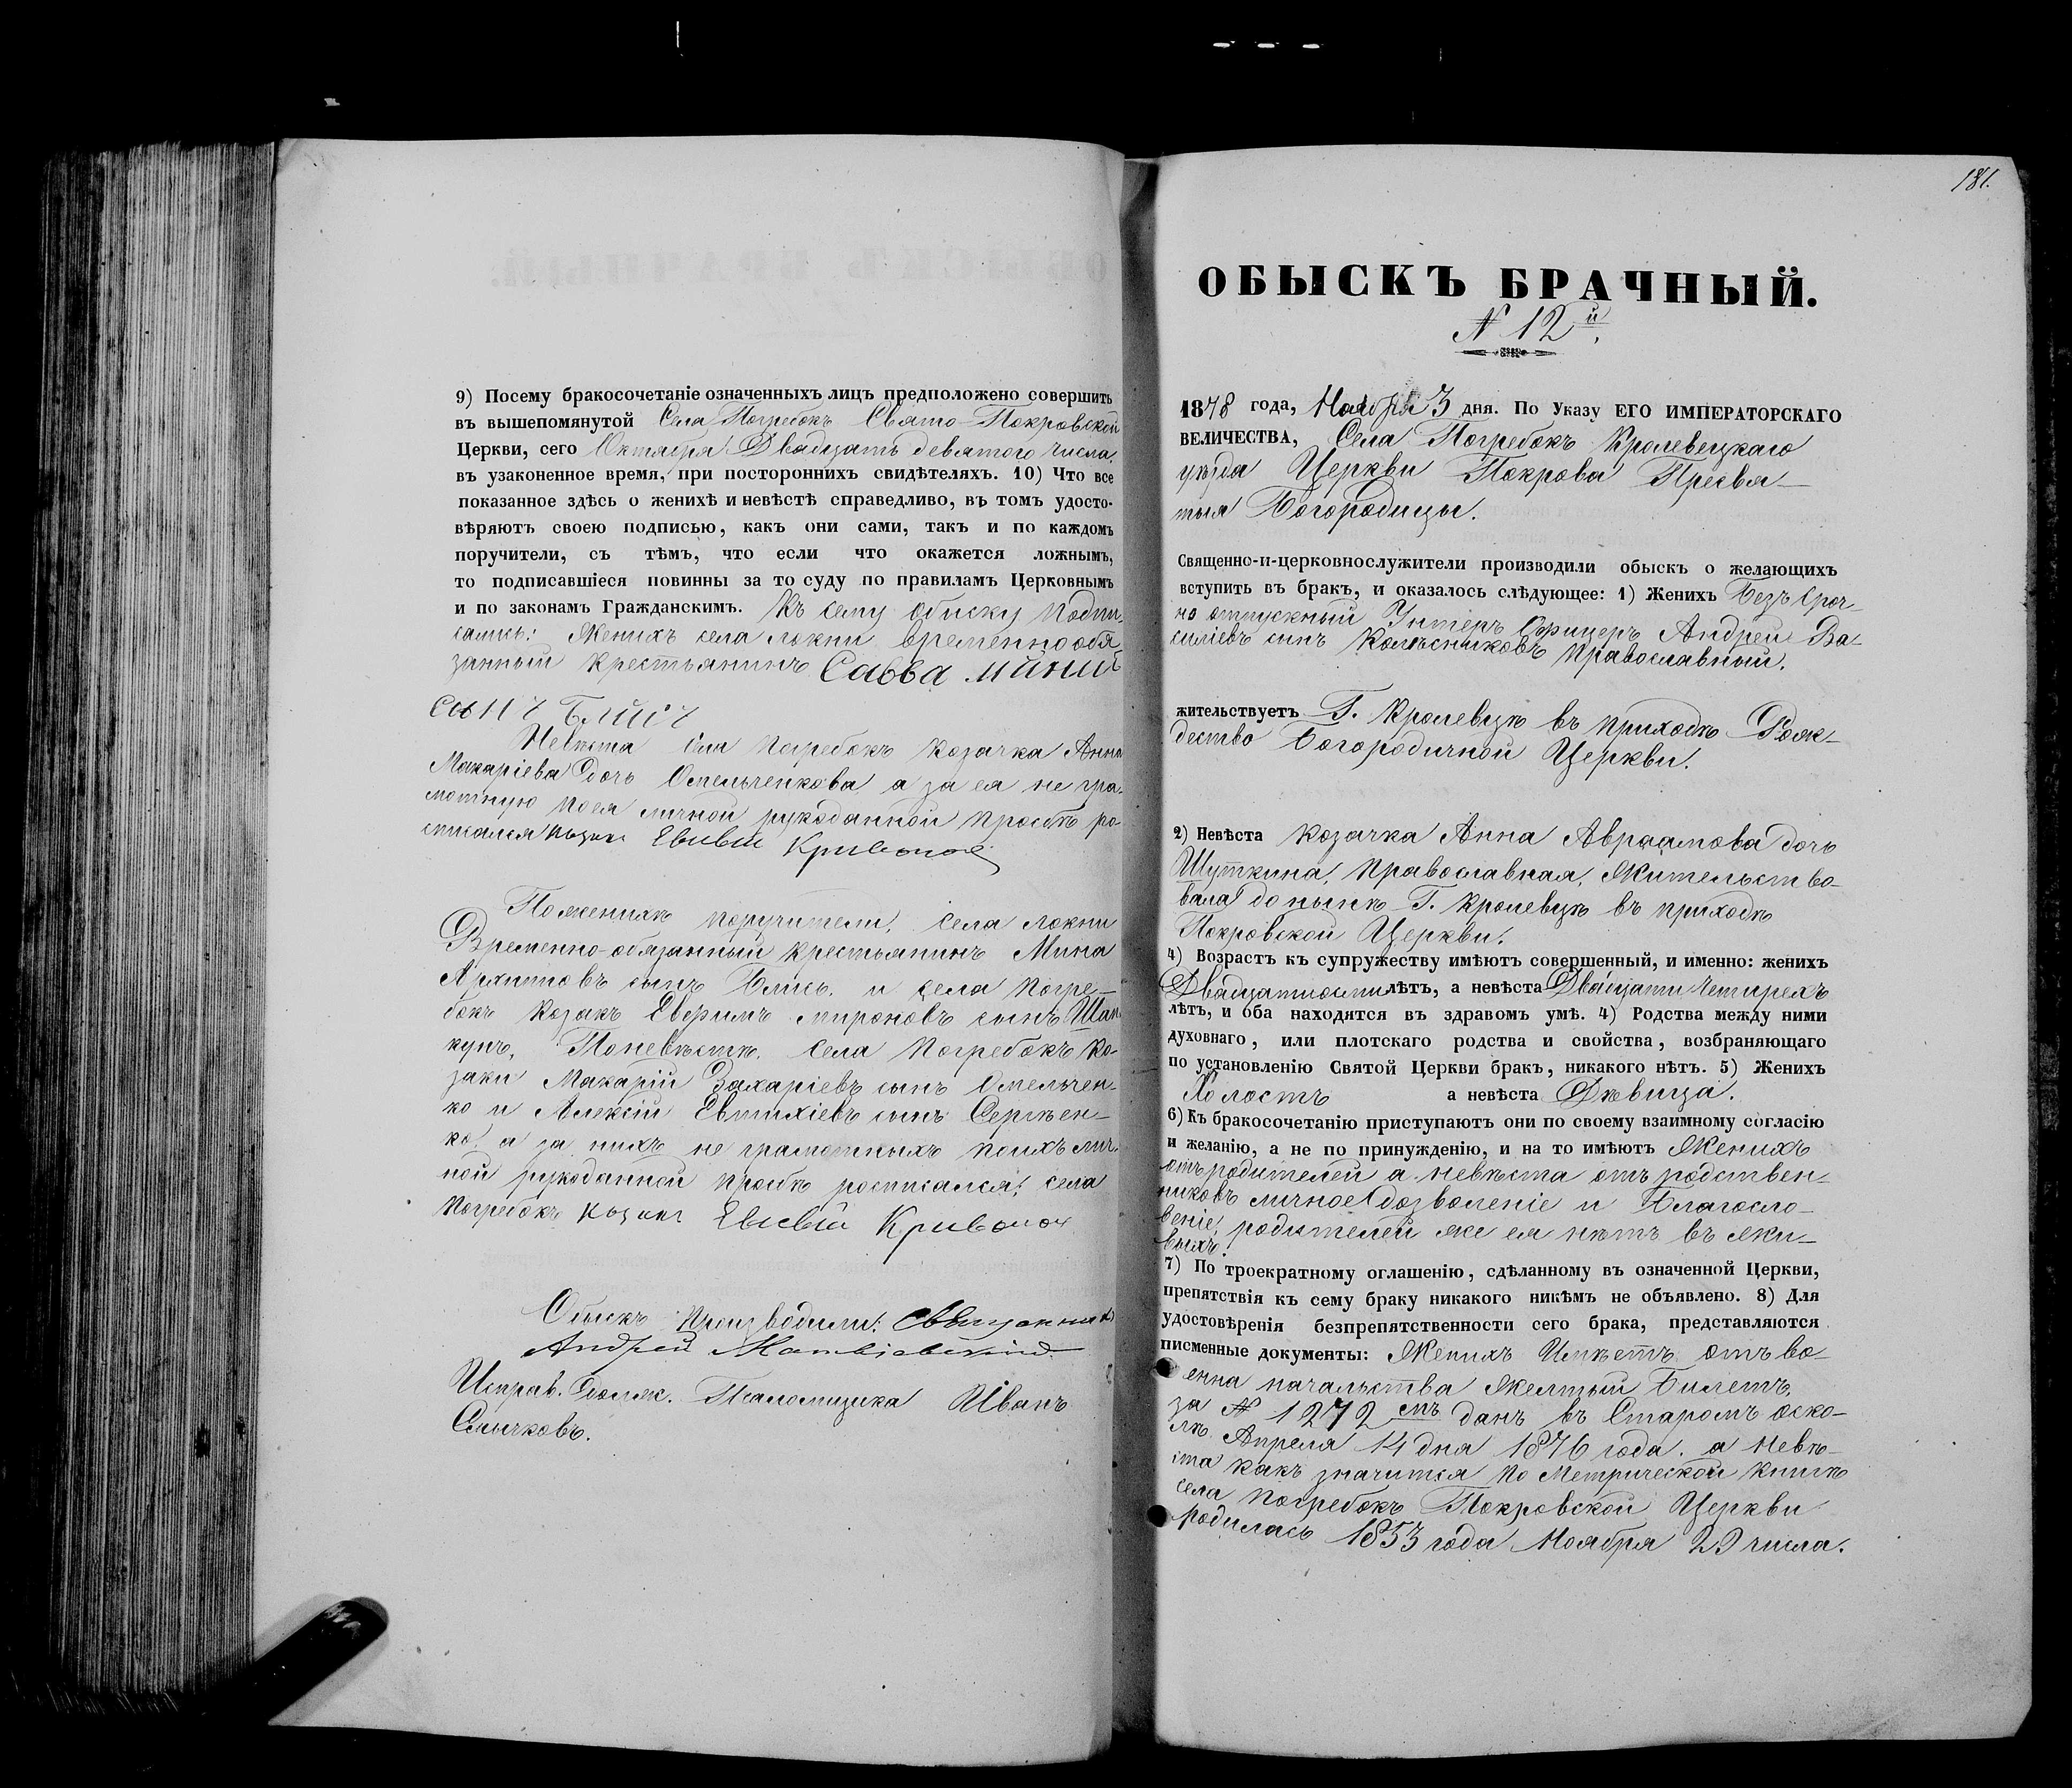 9) Посему бракосочетаніе означенныхъ лицъ предположено совершить
въ вышепомянутой Села Погребокъ Свято-Покровской
Церкви, сего Октября Двадцать девятого числа,
въ узаконенное время, при постороннихъ свидѣтеляхъ. 10) Что все
показанное здѣсь о женихѣ и невѣстѣ справедливо, въ томъ удосто-
вѣряютъ своею подписью, какъ они сами, такъ и по каждомъ
поручители, съ тѣмъ, что если что окажется ложнымъ,
то подписавшіеся повинны за то суду по правиламъ Церковнымъ
и по законамъ Гражданскимъ. Къ сему обыску подпи-
сались: Женихъ села Локни временнообя-
занный крестьянинъ Савва
сынъ
Невѣста села Погребокъ козачка Анна
Макаріева дочь Омельченкова а за ея не гра-
мотную по ея личной рукоданной просьбѣ ро-
списался козакъ Евсвій Кривонос
По женихѣ поручители, села Локни
Временно-обязанный крестьянинъ Мина
Архиповъ сынъ и села Погре-
бокъ козакъ Евфимъ Мироновъ сынъ Шап
кунъ, По невѣстѣ, села Погребокъ ко-
заки Макарій Захаріевъ сынъ Омельчен-
ко и Алексій Евтихіевъ сынъ Сергѣен-
ко, а за нихъ не грамотныхъ по ихъ лич-
ной рукоданной просьбѣ росписался: села
Погребокъ козакъ Евсевій Кривонос
Обыскъ производили: Священникъ
Андрей
Исправ. долж. Псаломщика Иванъ
Смычковъ.
181.
ОБЫСКЪ БРАЧНЫЙ.
№ 12й.
1878 года, Ноября 3 дня. По Указу ЕГО ИМПЕРАТОРСКАГО
ВЕЛИЧЕСТВА, Села Погребокъ Кролевецкаго
уѣзда Церкви Покрова Пресвя-
тыя Богородицы.
Священно-и-церковнослужители производили обыскъ о желающихъ
вступить въ бракъ, и оказалось слѣдующее: 1) Женихъ Безъ сроч-
но отпускный Унтеръ Офицеръ Андрей Ва-
силіевъ сынъ Колѣсниковъ православный.
жительствуетъ Г. Кролевцѣ въ приходѣ Рож-
дество Богородичной Церкви.
2) Невѣста козачка Анна Авраамова дочь
Шуткина, православная, жительство-
вала до нынѣ Г. Кролевцѣ въ приходѣ
Покровской Церкви.
4) Возрастъ къ супружеству имѣютъ совершенный, и именно: женихъ
лѣтъ, а невѣста Двадцати четирехъ
лѣтъ, и оба находятся въ здравомъ умѣ. 4) Родства между ними
духовнаго, или плотскаго родства и свойства, возбраняющаго
по установленію Святой Церкви бракъ, никакого нѣтъ. 5) Женихъ
Холостъ а невѣста Дѣвица.
6) Къ бракосочетанію приступаютъ они по своему взаимному согласію
и желанію, а не по принужденію, и на то имѣютъ Женихъ
отъ родителей а невѣста отъ родствен-
никовъ личное дозволеніе и Благосло-
веніе, родителей же ея нѣтъ въ жи-
выхъ.
7) По троекратному оглашенію, сдѣланному въ означенной Церкви,
препятствія къ сему браку никакого никѣмъ не объявлено. 8) Для
удостовѣренія безпрепятственности сего брака, представляются
писменные документы: Женихъ Имѣетъ отъ во-
енна начальства Желтый Билетъ,
за № 1272 мъ данъ въ Старомъ оско-
лѣ Апреля 14 дня 1876 года. а Невѣ-
ста какъ значится по Метрической книгѣ
села Погребокъ Покровской Церкви
родилась 1853 года Ноября 29 числа.